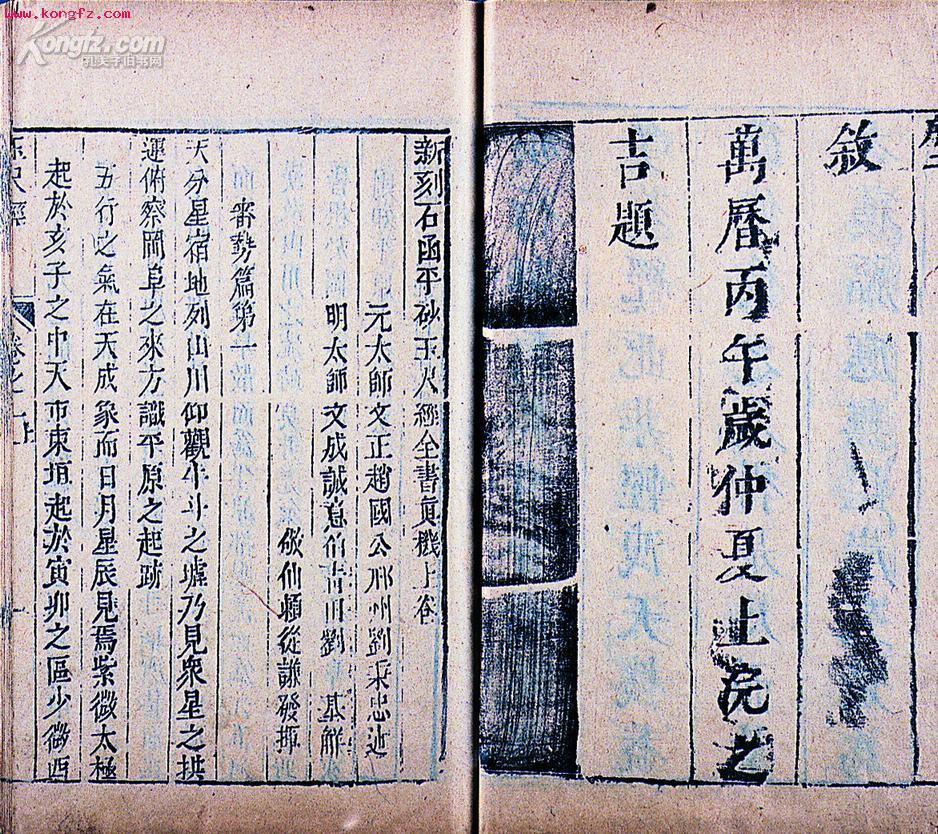 www.kongfz.com
Kongfz.com
孔夫子旧书网
敘
萬曆丙午歲仲夏上浣之
吉題
新刻石函平砂玉尺經全書真機上卷
元太師文正趙國公邢州劉秉忠述
明太師文成誠意伯青田劉基解
從謙發揮
審勢篇第一
天分星宿地列山川仰觀牛斗之墟乃見衆星之拱
運俯察岡阜之來方識平原之起跡
五行之氣在天成象而日月星辰見焉紫微太極
起於亥子之中天市東垣起於寅卯之區少微西
玉尺經
卷之上